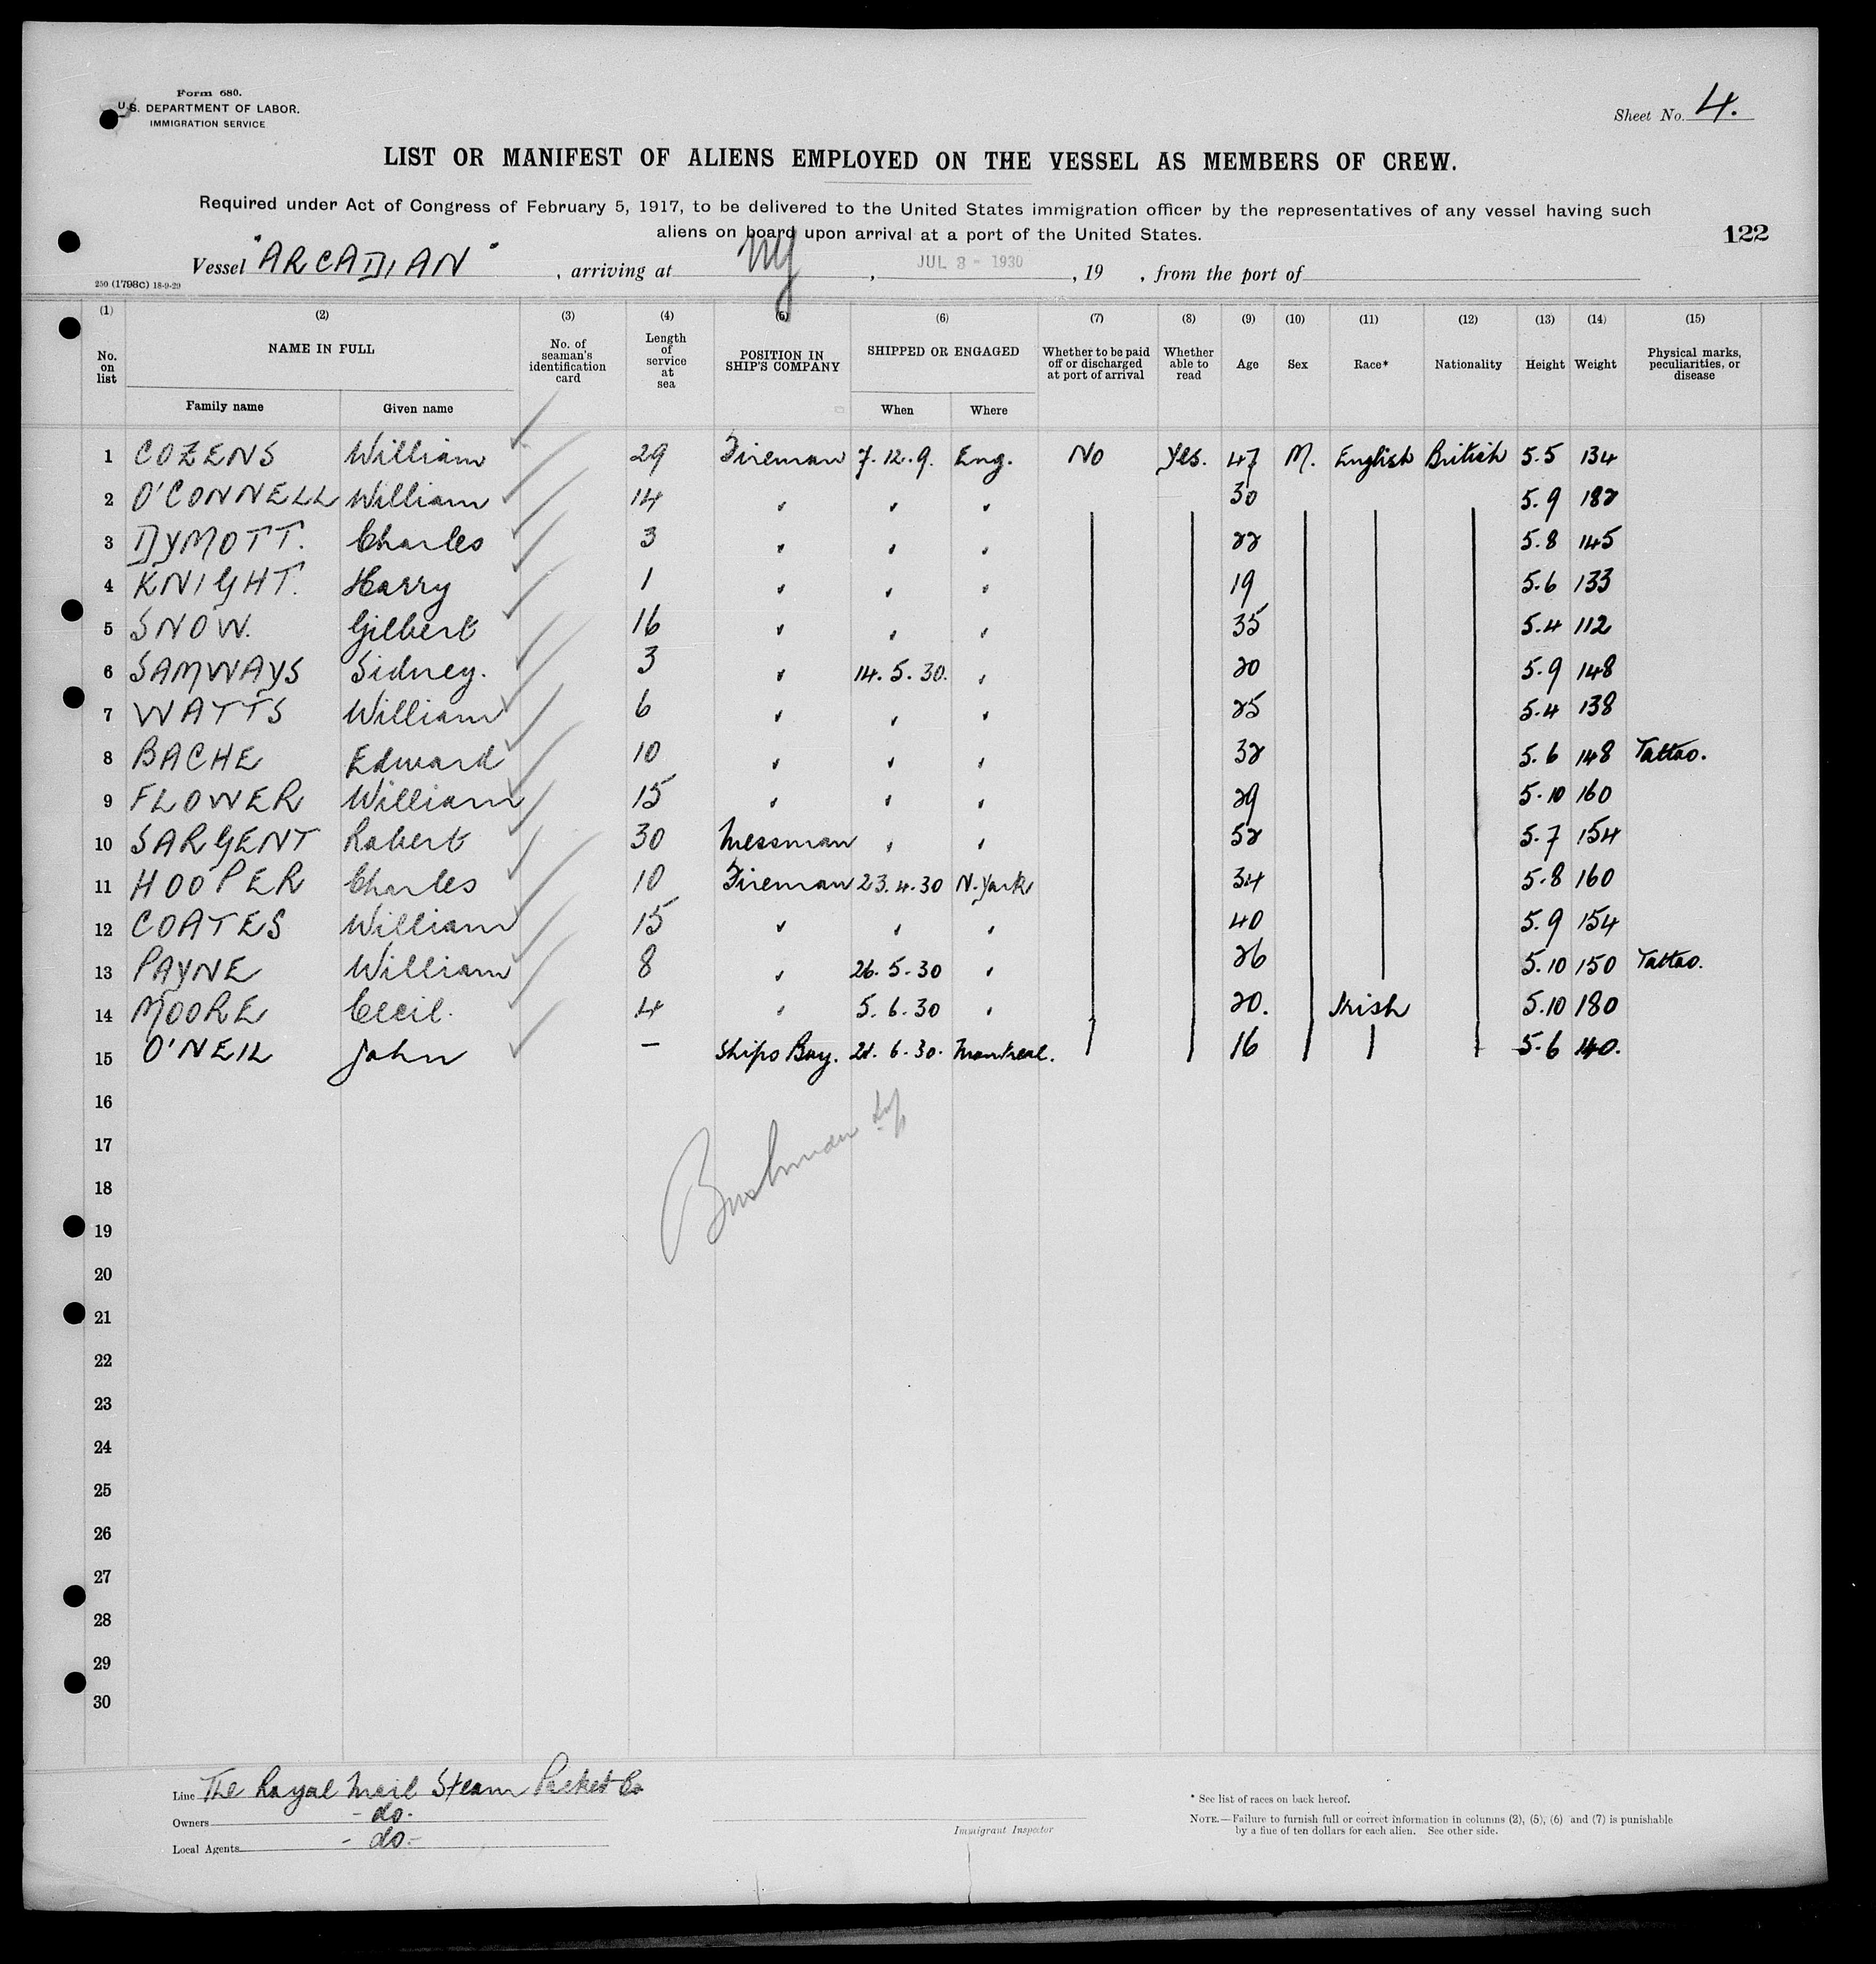 Form 680.
U.S. DEPARTMENT OF LABOR.
IMMIGRATION SERVICE
Sheet No. 4.
LIST OR MANIFEST OF ALIENS EMPLOYED ON THE VESSEL AS MEMBERS OF CREW.
Required under Act of Congress of February 5, 1917, to be delivered to the United States immigration officer by the representatives of any vessel having such
aliens on board upon arrival at a port of the United States.
122
Vessel "ARCADIAN", arriving at NY, JUL 3 - 1930, 19 , from the port of
250 (1798C) 18-9-29
(1) (2) (3) (4) (5) (6) (7) (8) (9) (10) (11) (12) (13) (14) (15)
No. on list NAME IN FULL No. of seaman's identification card Length of service at sea POSITION IN SHIP'S COMPANY SHIPPED OR ENGAGED Whether to be paid off or discharged at port of arrival Whether able to read Age Sex Race* Nationality Height Weight Physical marks, peculiarities, or disease
Family name Given name When Where
1 COZENS William 29 Fireman 7.12.9. Eng. No Yes. 47 M. English British 5.5 134
2 O'CONNELL William 14 " " " 30 5.9 182
3 DYMOTT. Charles 3 " " " 22 5.8 145
4 KNIGHT. Harry 1 " " " 19 5.6 133
5 SNOW. Gilbert 16 " " " 35 5.4 112
6 SAMWAYS Sidney. 3 " 14.5.30. " 20 5.9 148
7 WATTS William 6 " " " 25 5.4 138
8 BACHE Edward 10 " " " 32 5.6 148 Tattoo.
9 FLOWER William 15 " " " 29 5.10 160
10 SARGENT Robert 30 Messman " " 52 5.7 154
11 HOOPER Charles 10 Fireman 23.4.30 N. York 34 5.8 160
12 COATES William 15 " " " 40 5.9 154
13 PAYNE William 8 " 26.5.30 " 26 5.10 150 Tattoo.
14 MOORE Cecil. 4 " 5.6.30 " 20. Irish 5.10 180
15 O'NEIL John — Ships Boy. 21.6.30. Montreal. 16 5.6 140.
16
17
18
19
20
21
22
23
24
25
26
27
28
29
30
Line The Royal Mail Steam Packet Co
Owners - do.
Local Agents - do -
Immigrant Inspector
* See list of races on back hereof.
NOTE.—Failure to furnish full or correct information in columns (2), (5), (6) and (7) is punishable
by a fine of ten dollars for each alien. See other side.